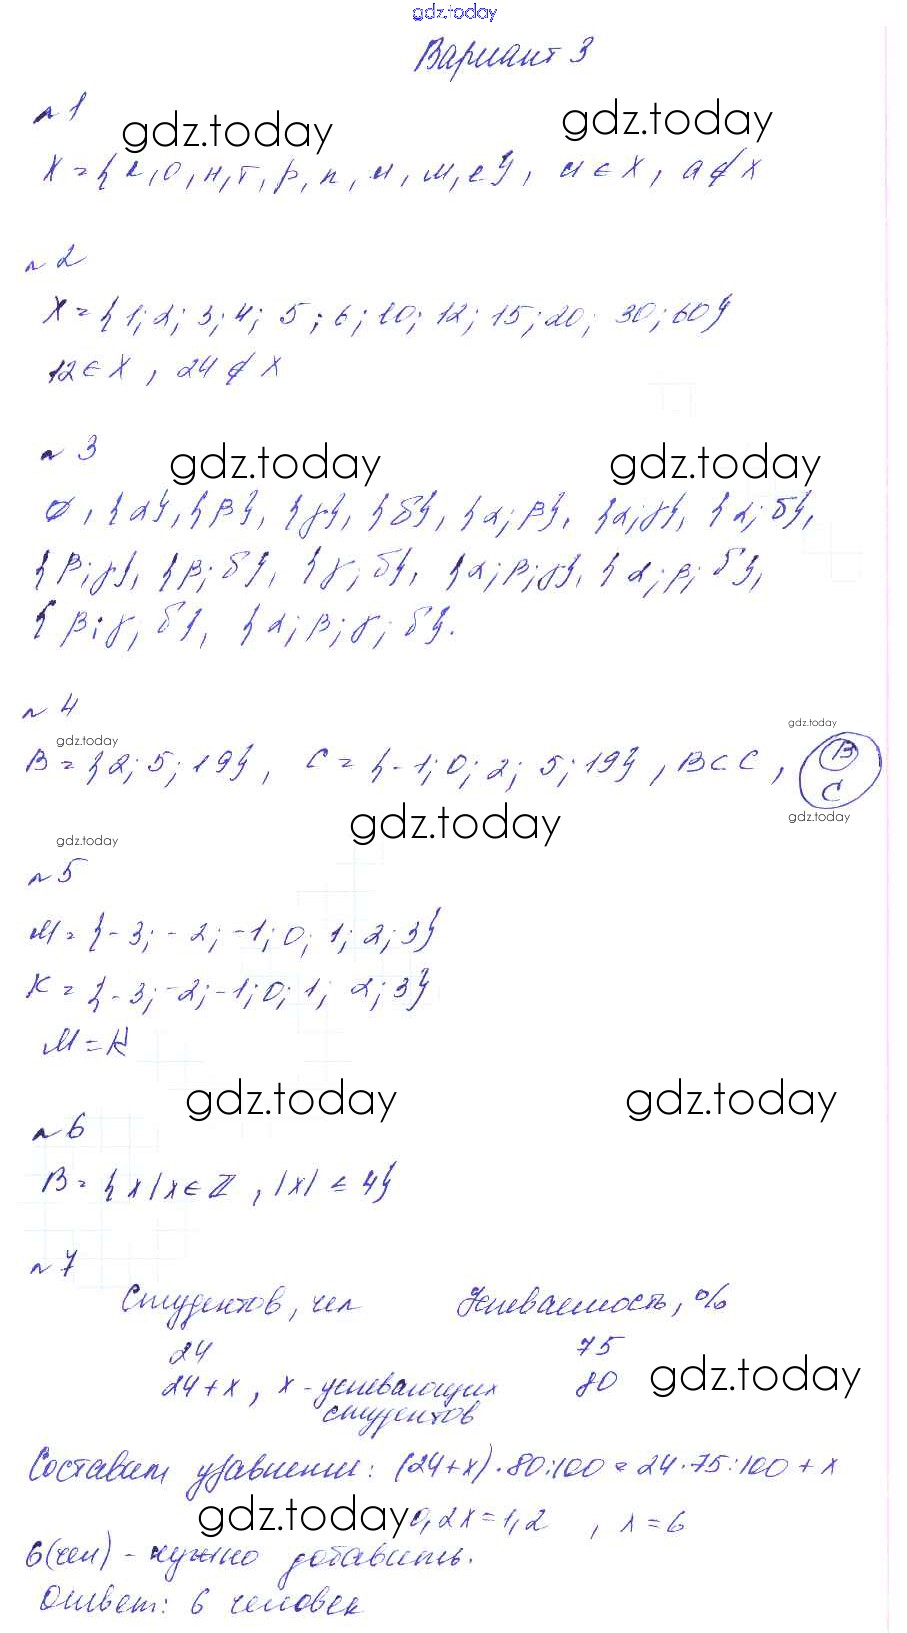 gdz.today
Вариант 3
№1
gdz.today gdz.today
X = {к, о, н, т, р, п, и, м, е}, и ∈ X, а ∉ X
№2
X = {1; 2; 3; 4; 5; 6; 10; 12; 15; 20; 30; 60}
12 ∈ X, 24 ∉ X
№3
gdz.today gdz.today
∅, {α}, {β}, {γ}, {δ}, {α; β}, {α; γ}, {α; δ},
{β; γ}, {β; δ}, {γ; δ}, {α; β; γ}, {α; β; δ},
{β; γ; δ}, {α; β; γ; δ}.
№4
gdz.today gdz.today
B = {2; 5; 19}, C = {-1; 0; 2; 5; 19}, B ⊂ C, B
C
gdz.today gdz.today
gdz.today
№5
M = {-3; -2; -1; 0; 1; 2; 3}
K = {-3; -2; -1; 0; 1; 2; 3}
M = K
gdz.today gdz.today
№6
B = {x | x ∈ Z, |x| ≤ 4}
№7
Студентов, чел Успеваемость, %
24 75
24 + x, x - успевающих 80
студентов
gdz.today
Составим уравнении: (24+x)·80:100 = 24·75:100 + x
gdz.today 0,2x = 1,2, x = 6
6 (чел) - нужно добавить.
Ответ: 6 человек